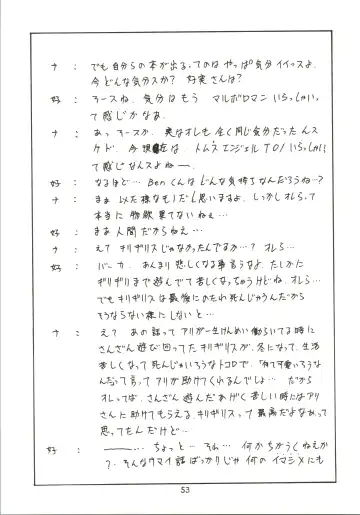 ナ : でも自分らの本が出るってのは やっぱ気分イイっスよ.
今どんな気分スか? 好実さんは?
好 : そースね, 気分はもう マルボロマン いらっしゃいって感じかなぁ.
ナ : あっ そースか, 実はオレも全く同じ気分だったんス
ケド, 今現在は, トムズエンジェルTO! いらっしゃい
って感じなんスよねー.
好 : なるほど… Benくんはどんな気持ちなんだろうね…?
ナ : まぁ 以た様なモノだと思いますよ. しっかしオレらって
本当に 物欲 果てないねぇ…
好 : まあ人間だからねぇ…
ナ : え? キリギリスじゃなかったんですか…? オレら…
好 : バーカ, あんまり悲しくなる事言うなよ, たしかに
ギリギリまで遊んでて苦しくなっちゃうけどね, オレら…
でもキリギリスは最後にのたれ死んじゃうんだから
そうならない様にしないと…
ナ : え? あの話ってアリが一生けんめい働らいてる時に
さんざん遊び回ってたキリギリスが, 冬になって, 生活
苦しくなって死んじゃいそうなトコロで,
んだって言って アリが助けてくれるんでしょ… だから
オレってば, さんざん遊んだあげく苦しい時にはアリ
さんに助けてもらえる, キリギリスって最高だよなぁって
思ってたんだけど…
好 : ――… ちょっと… うん… 何かちがうくねえか
?. そんなウマイ話ばっかりじゃ 何の イマシメにも
53